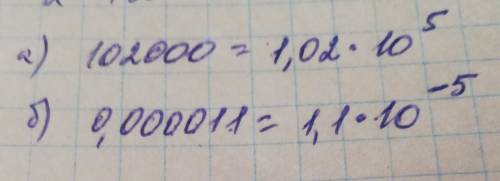 а) 102000 = 1,02 · 10⁵
б) 0,000011 = 1,1 · 10⁻⁵